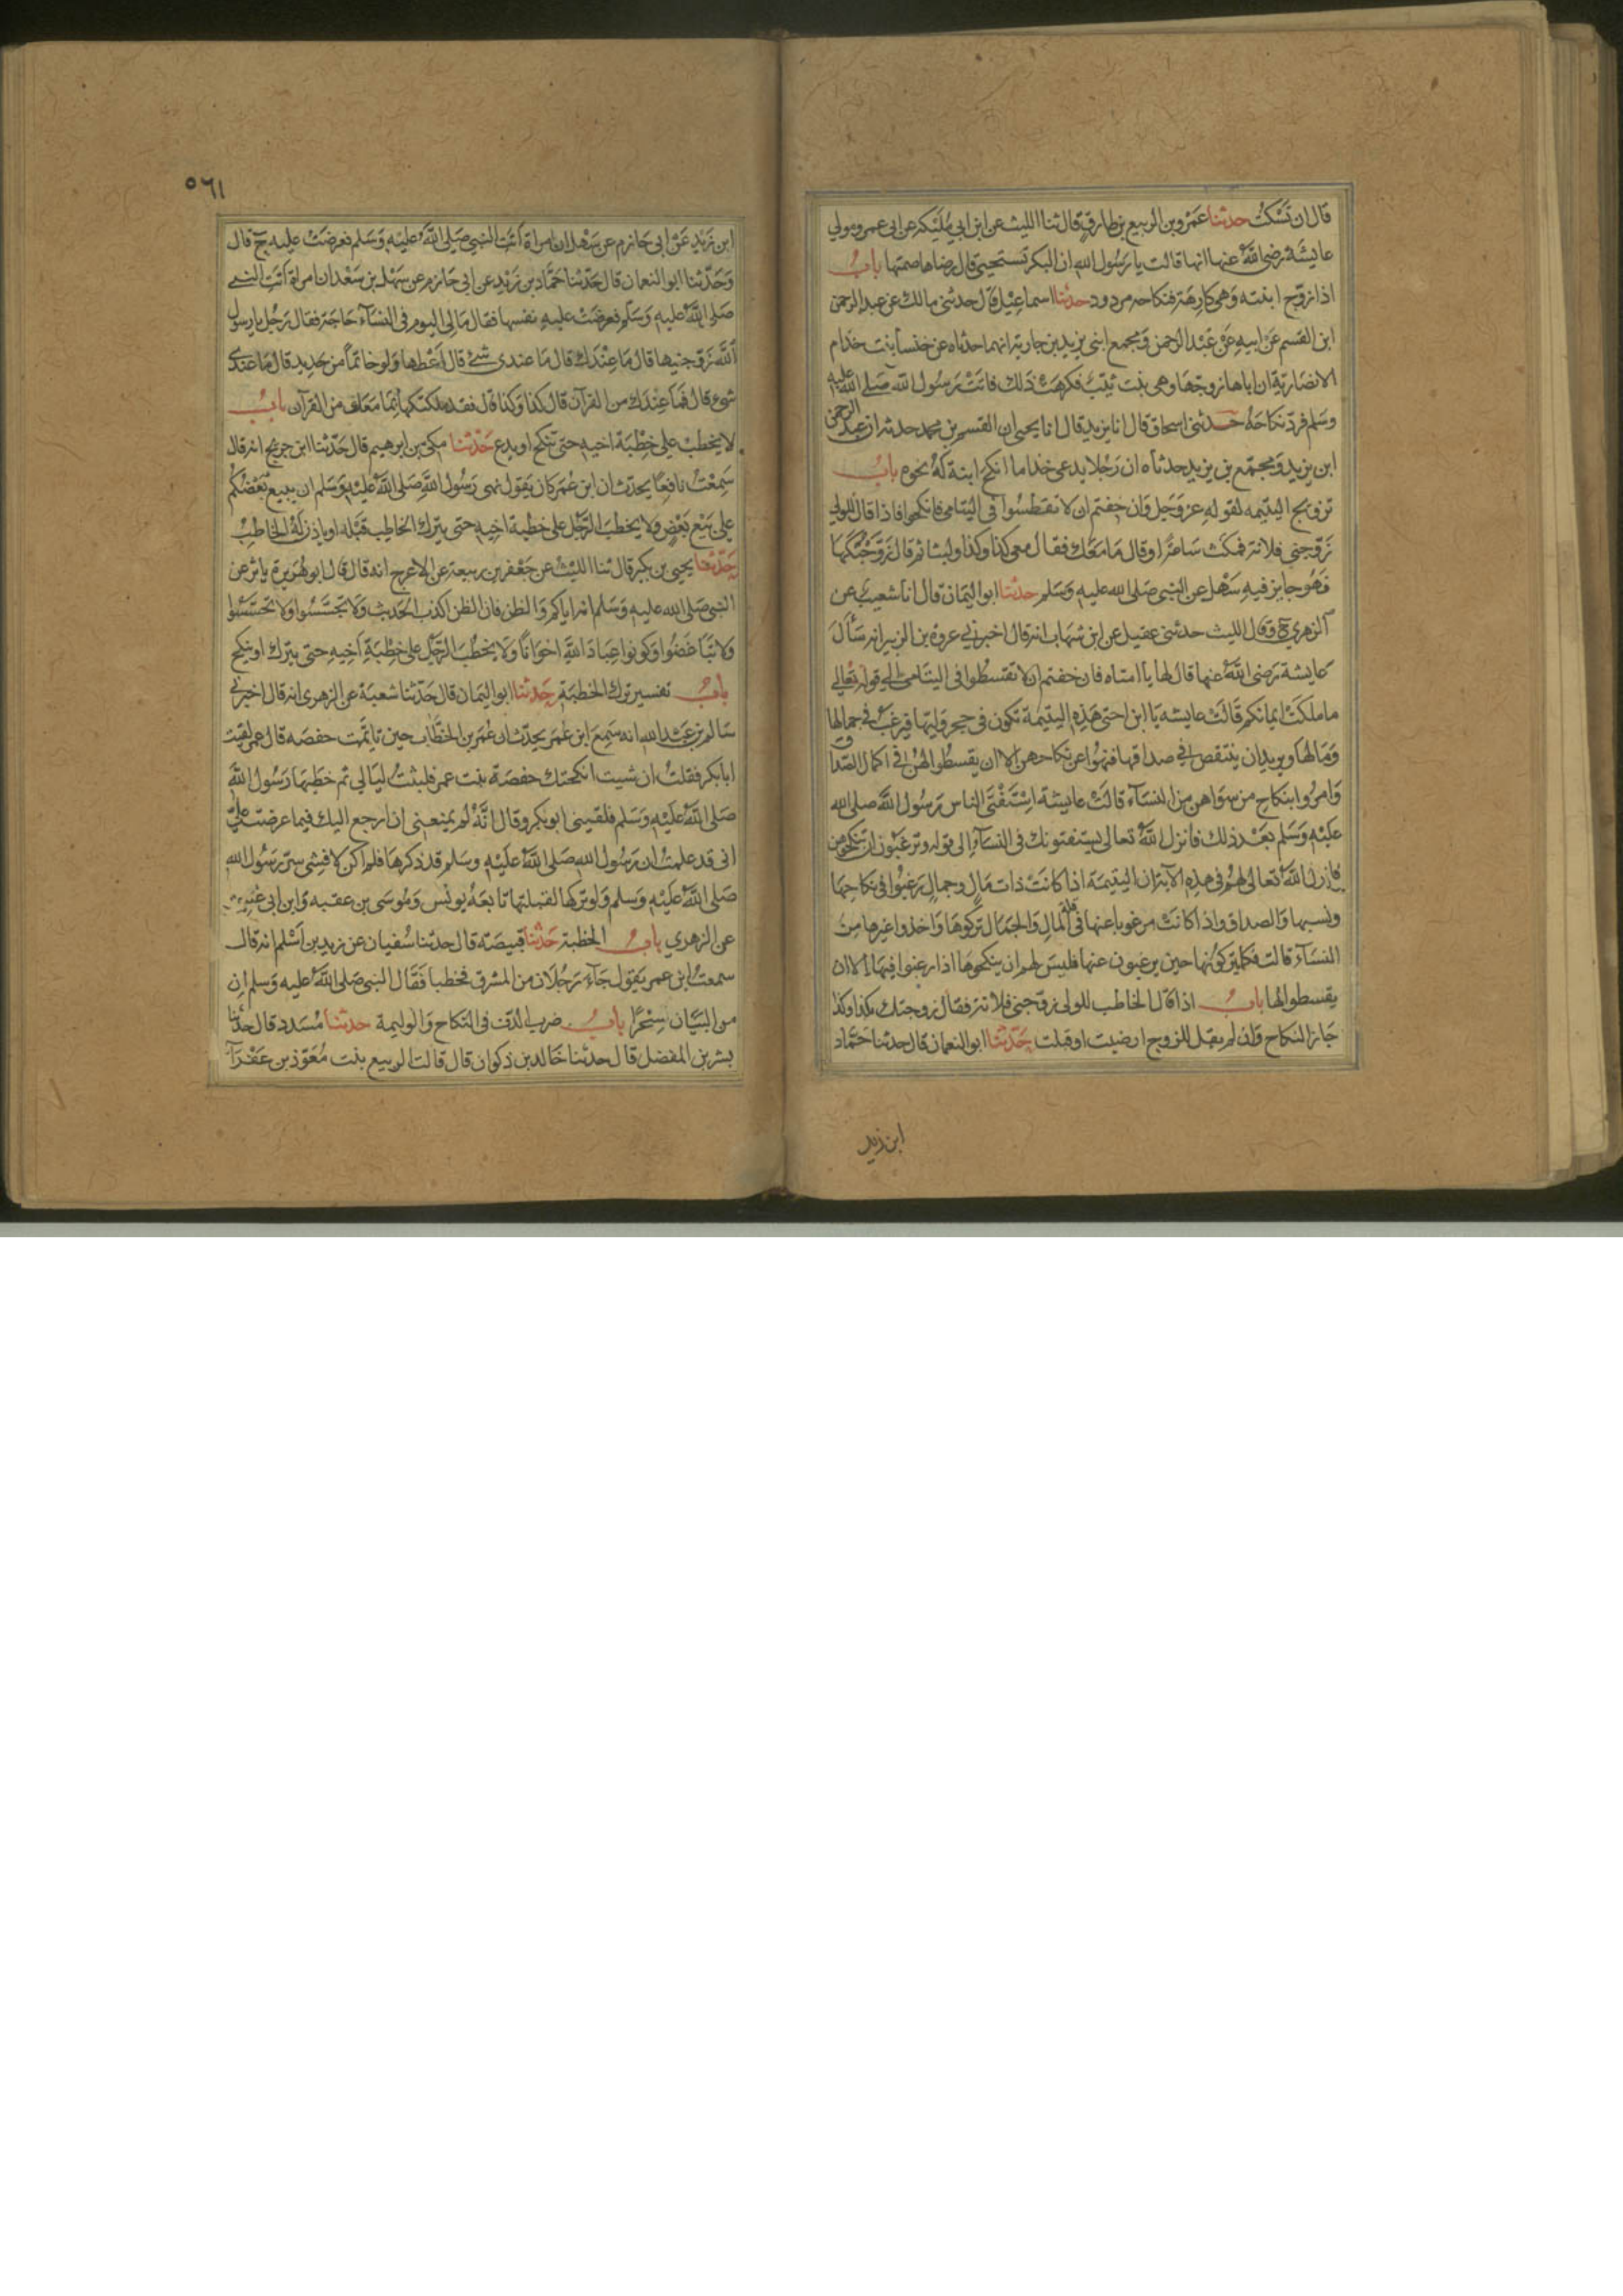 قال ان تسكت حدثنا عمرو بن الربيع بن طارق قال ثنا الليث عن ابن ابي مليكة عن ابي عمرو مولي
عايشة رضي الله عنها انها قالت يا رسول الله ان البكر تستحيي قال رضاها صمتها باب
اذا زوج ابنته وهي كارهة فنكاحه مردود حدثنا اسماعيل قال حدثني مالك عن عبد الرحمن
ابن القسم عن ابيه عن عبد الرحمن ومجمع ابني يزيد بن جارية انهما حدثاه عن خنسا بنت خذام
الانصارية ان اباها زوجها وهي بنت ثيب فكرهت ذلك فاتت رسول الله صلي الله عليه
وسلم فرد نكاحه حدثني اسحاق قال انا يزيد قال انا يحيي ان القسم بن محمد حدثه ان عبد الرحمن
ابن يزيد ومجمع بن يزيد حدثاه ان رجلا يدعي خذاما انكح ابنة له نحوه باب
تزويج اليتيمه لقوله عز وجل وان خفتم ان لا تقسطوا في اليتامي فانكحوا فاذا قال للولي
زوجني فلانة فمكث ساعة او قال ما معك فقال معي كذا وكذا ولبثا ثم قال زوجتكها
فهو جايز فيه سهل عن النبي صلي الله عليه وسلم حدثنا ابو اليمان قال انا شعيب عن
الزهري ح وقال الليث حدثني عقيل عن ابن شهاب انه قال اخبرني عروة بن الزبير انه سأل
عايشة رضي الله عنها قال لها يا امتاه فان خفتم ان لا تقسطوا في اليتامي الي قوله تعالي
ما ملكت ايمانكم قالت عايشه يا ابن اختي هذه اليتيمة تكون في حجر وليها فيرغب في جمالها
ومالها ويريد ان ينتقص في صداقها فنهوا عن نكاحهن الا ان يقسطوا لهن في اكمال الصداق
وامروا بنكاح من سواهن من النسآء قالت عايشة استفتي الناس رسول الله صلي الله
عليه وسلم بعد ذلك فانزل الله تعالي يستفتونك في النسآء الي قوله وترغبون ان تنكحوهن
فانزل الله تعالي لهم في هذه الآية ان اليتيمة اذا كانت ذات مال وجمال رغبوا في نكاحها
ونسبها والصداق واذا كانت مرغوبا عنها في قلة المال والجمال تركوها واخذوا غيرها من
النسآء قالت فكما يتركونها حين يرغبون عنها فليس لهم ان ينكحوها اذا رغبوا فيها الا ان
يقسطوا لها باب اذا قال الخاطب للولي زوجني فلانة فقال زوجتك بكذا وكذا
جاز النكاح وان لم يقل للزوج ارضيت او قبلت حدثنا ابو النعمان قال حدثنا حماد
ابن زيد
٥٦١
ابن زيد عن ابي حازم عن سهل ان امراة اتت النبي صلي الله عليه وسلم فعرضت عليه ح قال
وحدثنا ابو النعمان قال حدثنا حماد بن زيد عن ابي حازم عن سهل بن سعد ان امراة اتت النبي
صلي الله عليه وسلم فعرضت عليه نفسها فقال مالي اليوم في النسآء حاجة فقال رجل يا رسول
الله زوجنيها قال ما عندك قال ما عندي شئ قال اعطها ولو خاتما من حديد قال ما عندي
شئ قال فما عندك من القرآن قال كذا وكذا قال فقد ملكتكها بما معك من القرآن باب
لا يخطب علي خطبة اخيه حتي ينكح او يدع حدثنا مكي بن ابرهيم قال حدثنا ابن جريج انه قال
سمعت نافعا يحدث ان ابن عمر كان يقول نهي رسول الله صلي الله عليه وسلم ان يبيع بعضكم
علي بيع بعض ولا يخطب الرجل علي خطبة اخيه حتي يترك الخاطب قبله او ياذن له الخاطب
حدثنا يحيي بن بكير قال ثنا الليث عن جعفر بن ربيعة عن الاعرج انه قال قال ابو هريرة ياثر عن
النبي صلي الله عليه وسلم انه اياكم والظن فان الظن اكذب الحديث ولا تجسسوا ولا تحسسوا
ولا تباغضوا وكونوا عباد الله اخوانا ولا يخطب الرجل علي خطبة اخيه حتي يترك او ينكح
باب تفسير ترك الخطبة حدثنا ابو اليمان قال حدثنا شعبة عن الزهري انه قال اخبرني
سالم بن عبد الله انه سمع ابن عمر يحدث ان عمر بن الخطاب حين تايمت حفصه قال عمر لقيت
ابا بكر فقلت ان شيت انكحتك حفصة بنت عمر فلبثت ليالي ثم خطبها رسول الله
صلي الله عليه وسلم فلقيني ابو بكر وقال انه لم يمنعني ان ارجع اليك فيما عرضت علي
اني قد علمت ان رسول الله صلي الله عليه وسلم قد ذكرها فلم اكن لافشي سر رسول الله
صلي الله عليه وسلم ولو تركها لقبلتها تابعه يونس وموسي بن عقبه وابن ابي عتيق
عن الزهري باب الخطبة حدثنا قبيصة قال حدثنا سفيان عن زيد بن اسلم انه قال
سمعت ابن عمر يقول جآء رجلان من المشرق فخطبا فقال النبي صلي الله عليه وسلم ان
من البيان سحرا باب ضرب الدف في النكاح والوليمة حدثنا مسدد قال حدثنا
بشر بن المفضل قال حدثنا خالد بن ذكوان قال قالت الربيع بنت معوذ بن عفرآ